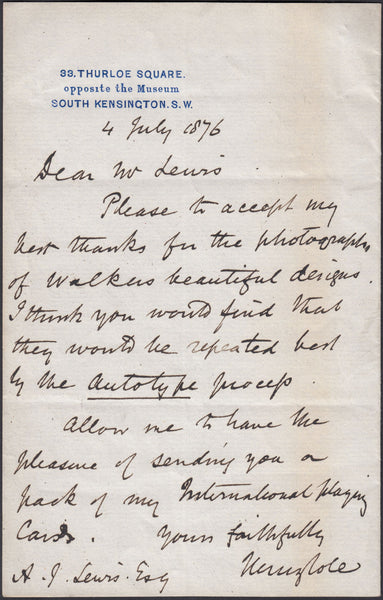 33. THURLOE SQUARE.
opposite the Museum
SOUTH KENSINGTON. S.W.
4 July 1876
Dear Mr Lewis
Please to accept my
best thanks for the photographs
of Walkers beautiful designs.
I think you would find that
they would be repeated best
by the Autotype process
Allow me to have the
pleasure of sending you a
pack of my International playing
Cards. Yours faithfully
A. J. Lewis. Esq Henry Cole